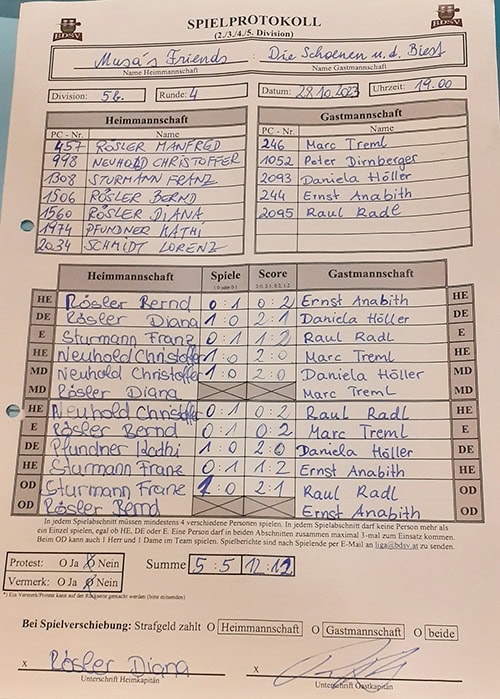 BDSV SPIELPROTOKOLL BDSV
(2./3./4./5. Division)
Musa's Friends : Die Schoenen u. d. Biest
Name Heimmannschaft Name Gastmannschaft
Division: 5b. Runde: 4 Datum: 28.10.2023 Uhrzeit: 19.00
Heimmannschaft Gastmannschaft
PC - Nr. Name PC - Nr. Name
457 RÖSLER MANFRED 246 Marc Treml
998 NEUHOLD CHRISTOFFER 1052 Peter Dirnberger
1308 STURMANN FRANZ 2093 Daniela Höller
1506 RÖSLER BERND 244 Ernst Anabith
1560 RÖSLER DIANA 2095 Raul Radl
1974 PFUNDNER KATHI
2034 SCHMIDT LORENZ
Heimmannschaft Spiele Score Gastmannschaft
1:0 oder 0:1 2:0, 2:1, 0:2, 1:2
HE Rösler Bernd 0:1 0:2 Ernst Anabith HE
DE Rösler Diana 1:0 2:1 Daniela Höller DE
E Sturmann Franz 0:1 1:2 Raul Radl E
HE Neuhold Christoffer 1:0 2:0 Marc Treml HE
MD Neuhold Christoffer 1:0 2:0 Daniela Höller MD
MD Rösler Diana Marc Treml MD
HE Neuhold Christoffer 0:1 0:2 Raul Radl HE
E Rösler Bernd 0:1 0:2 Marc Treml E
DE Pfundner Kathi 1:0 2:0 Daniela Höller DE
HE Sturmann Franz 0:1 1:2 Ernst Anabith HE
OD Sturmann Franz 1:0 2:1 Raul Radl OD
OD Rösler Bernd Ernst Anabith OD
In jedem Spielabschnitt müssen mindestens 4 verschiedene Personen spielen. In jedem Spielabschnitt darf keine Person mehr als
ein Einzel spielen, egal ob HE, DE oder E. Eine Person darf in beiden Abschnitten zusammen maximal 3-mal zum Einsatz kommen.
Beim OD kann auch 1 Herr und 1 Dame im Team spielen. Spielberichte sind nach Spielende per E-Mail an liga@bdsv.at zu senden.
Protest: O Ja O Nein Summe 5:5 12:12
Vermerk: O Ja O Nein
*) Ein Vermerk/Protest kann auf der Rückseite gemacht werden (bitte ankreuzen)
Bei Spielverschiebung: Strafgeld zahlt O Heimmannschaft O Gastmannschaft O beide
x Rösler Diana x
Unterschrift Heimkapitän Unterschrift Gastkapitän